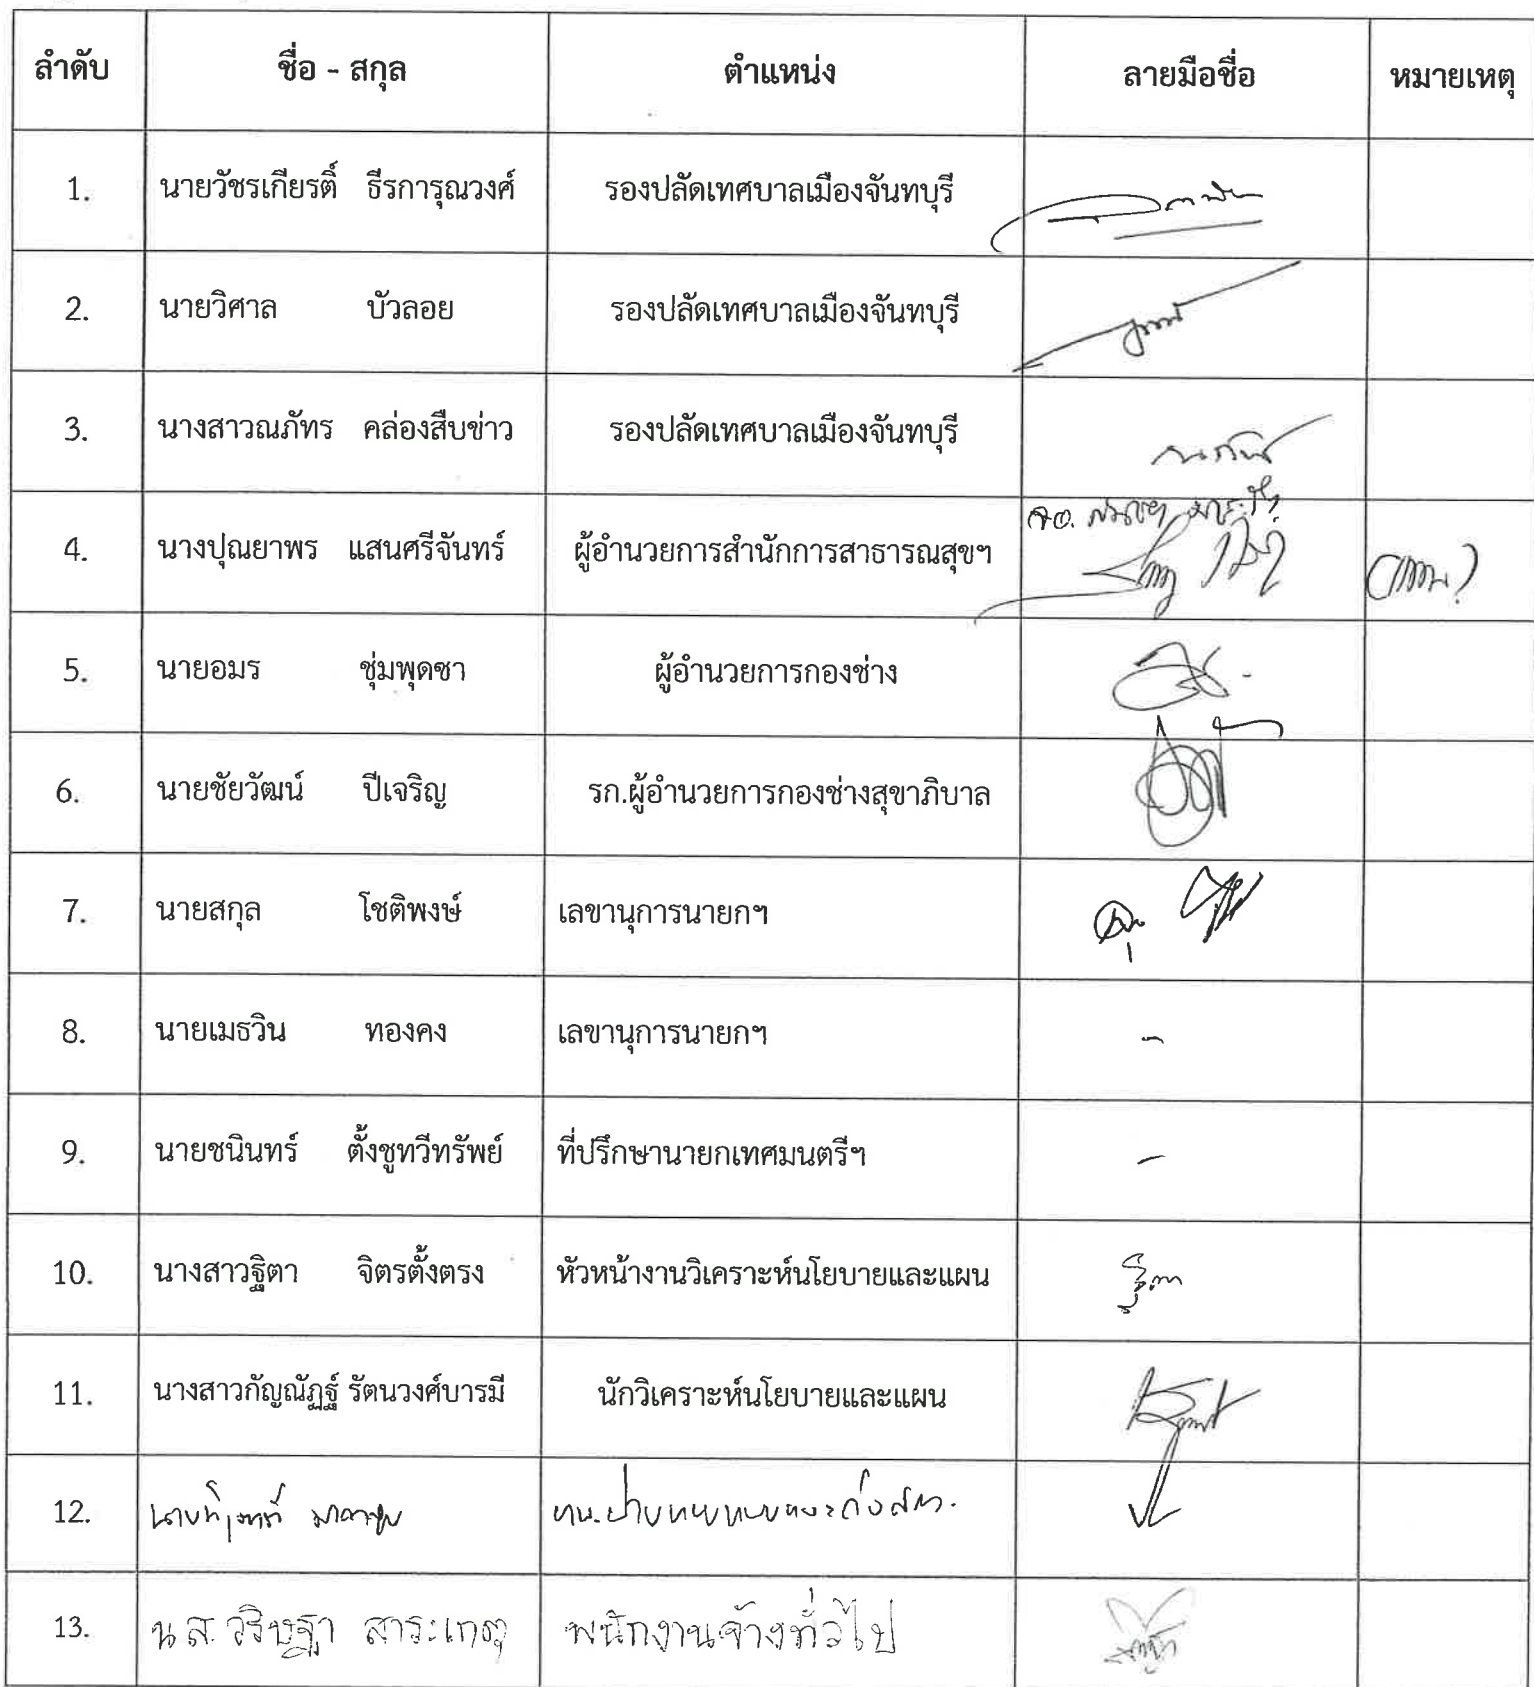 ลำดับ ชื่อ - สกุล ตำแหน่ง ลายมือชื่อ หมายเหตุ
1. นายวัชรเกียรติ์ ธีรการุณวงศ์ รองปลัดเทศบาลเมืองจันทบุรี
2. นายวิศาล บัวลอย รองปลัดเทศบาลเมืองจันทบุรี
3. นางสาวณภัทร คล่องสืบข่าว รองปลัดเทศบาลเมืองจันทบุรี
4. นางปุณยาพร แสนศรีจันทร์ ผู้อำนวยการสำนักการสาธารณสุขฯ
5. นายอมร ชุ่มพุดชา ผู้อำนวยการกองช่าง
6. นายชัยวัฒน์ ปีเจริญ รก.ผู้อำนวยการกองช่างสุขาภิบาล
7. นายสกุล โชติพงษ์ เลขานุการนายกฯ
8. นายเมธวิน ทองคง เลขานุการนายกฯ -
9. นายชนินทร์ ตั้งชูทวีทรัพย์ ที่ปรึกษานายกเทศมนตรีฯ -
10. นางสาวฐิตา จิตรตั้งตรง หัวหน้างานวิเคราะห์นโยบายและแผน ฐิตา
11. นางสาวกัญณัฏฐ์ รัตนวงศ์บารมี นักวิเคราะห์นโยบายและแผน
12.
13. น.ส. วริษฐา สาระเกตุ พนักงานจ้างทั่วไป